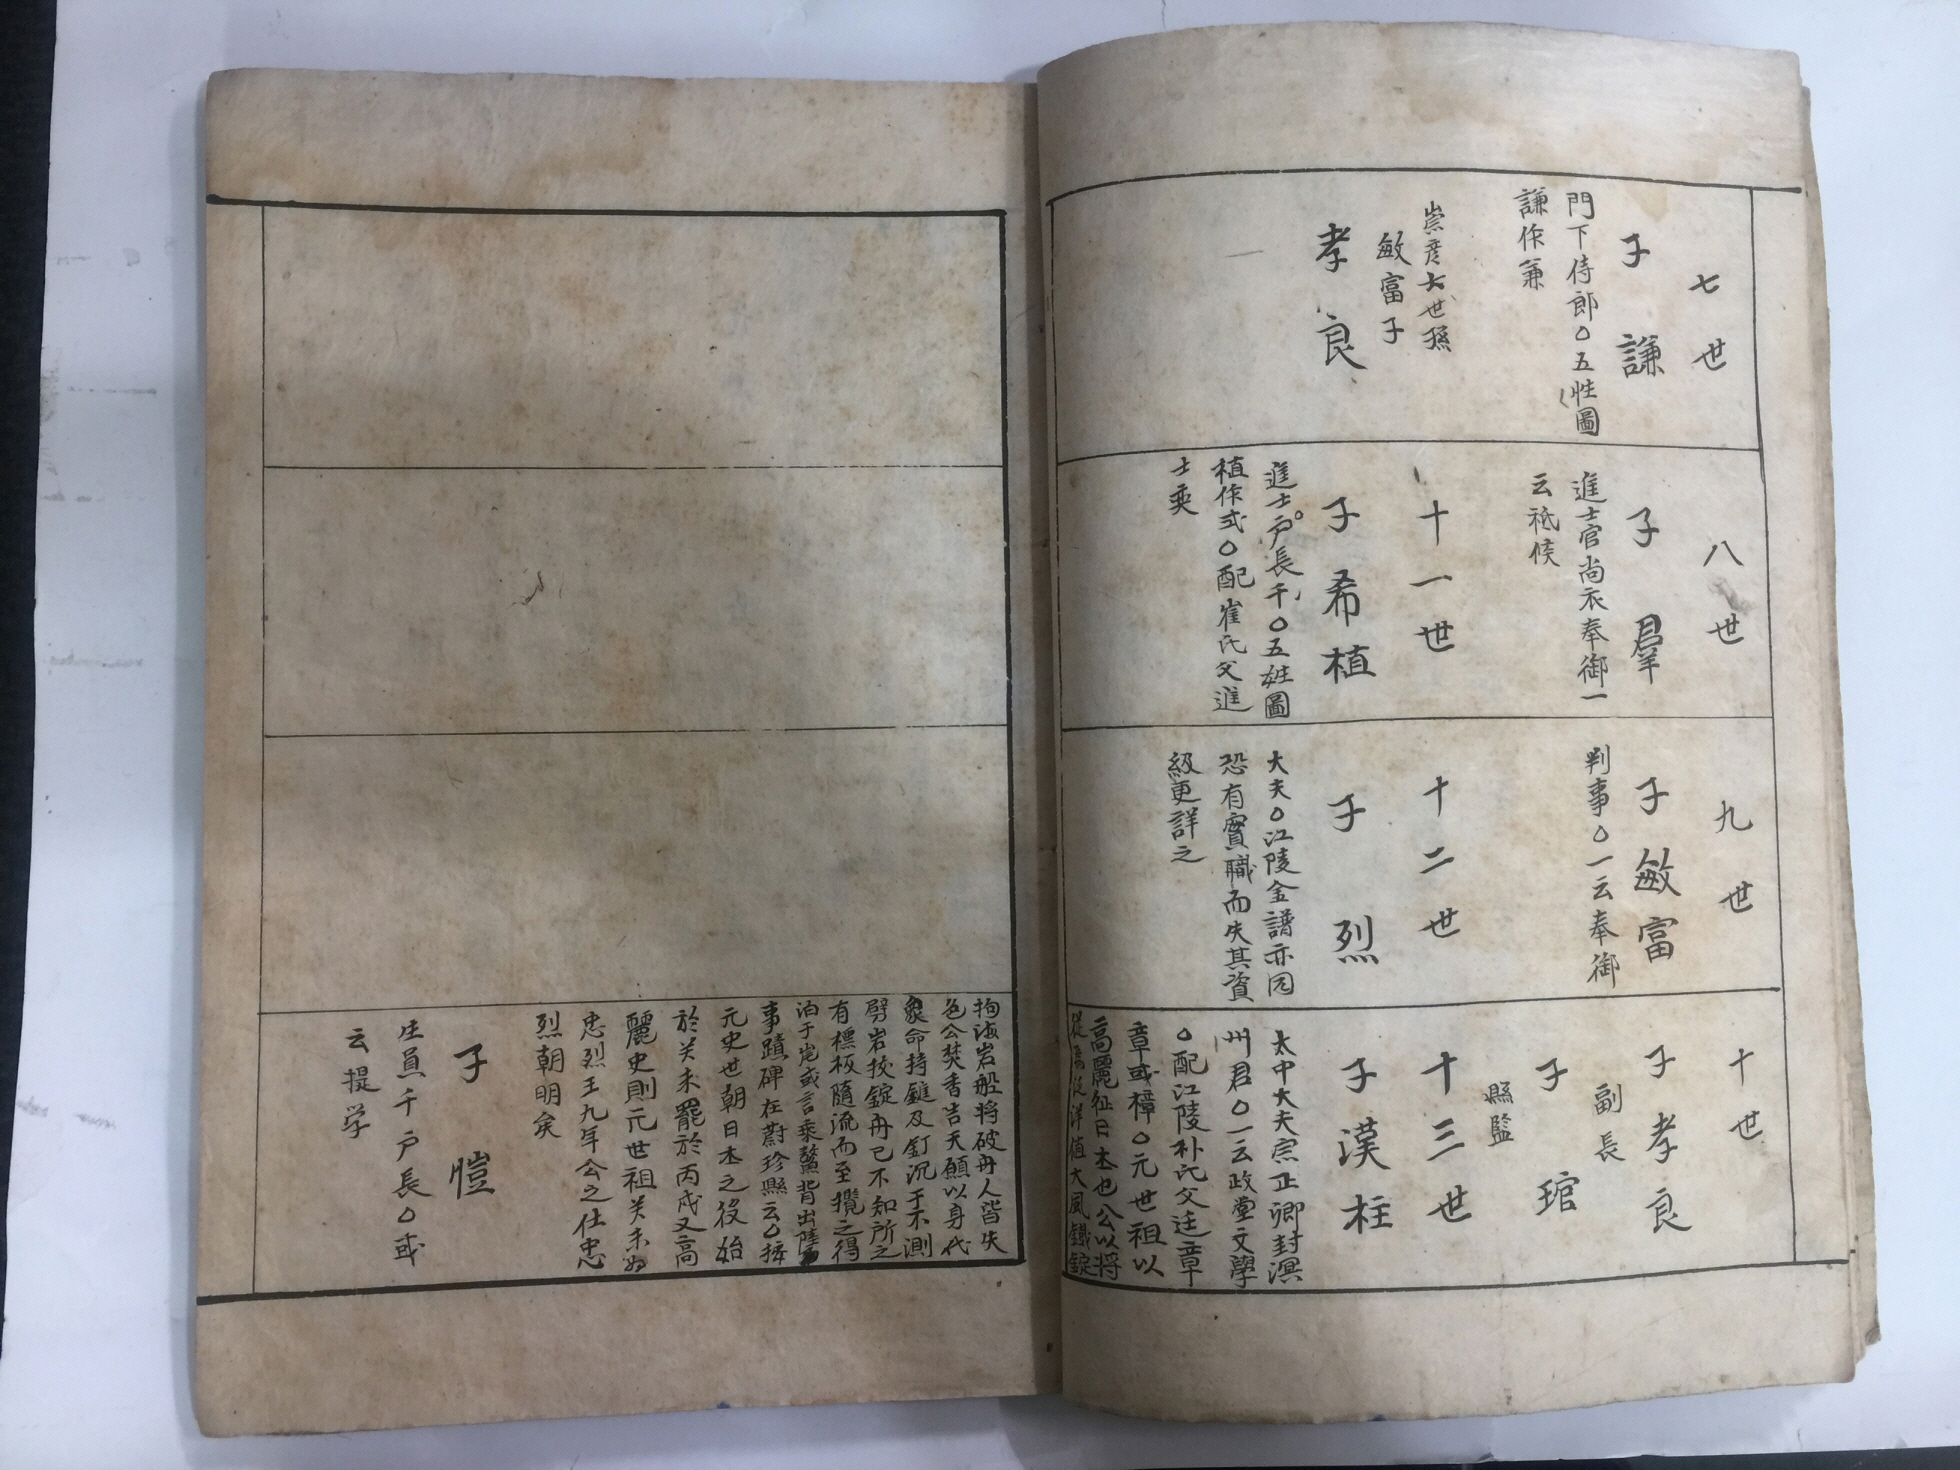 七世
子謙
門下侍郎〇五性圖
謙作兼
八世
子羣
進士官尚衣奉御一
云祗候
九世
子敏富
判事〇一云奉御
十世
子孝良
副長
子琯
縣監
崇彦六世孫
敏富子
孝良
十一世
子希植
進士戶長千〇五姓圖
植作式〇配崔氏父進
士奕
十二世
子烈
大夫〇江陵金譜亦同
恐有實職而失其資
級更詳之
十三世
子漢柱
太中大夫宗正卿封溟
州君〇一云政堂文學
〇配江陵朴氏父廷章
章或樟〇元世祖以
高麗征日本也公以將
從焉從洋值大風鐵錠
拘海岩船將破舟人皆失
色公焚香告天願以身代
衆命持鎚及釘沉于不測
劈岩拔錠舟已不知所之
有標板隨流而至攬之得
泊于岸或言乘鰲背出陸
事蹟碑在蔚珍縣云〇按
元史世朝日本之役始
於癸未罷於丙戌又高
麗史則元世祖癸未
忠烈王九年公之仕忠
烈朝明矣
子愷
生員千戶長〇或
云提学